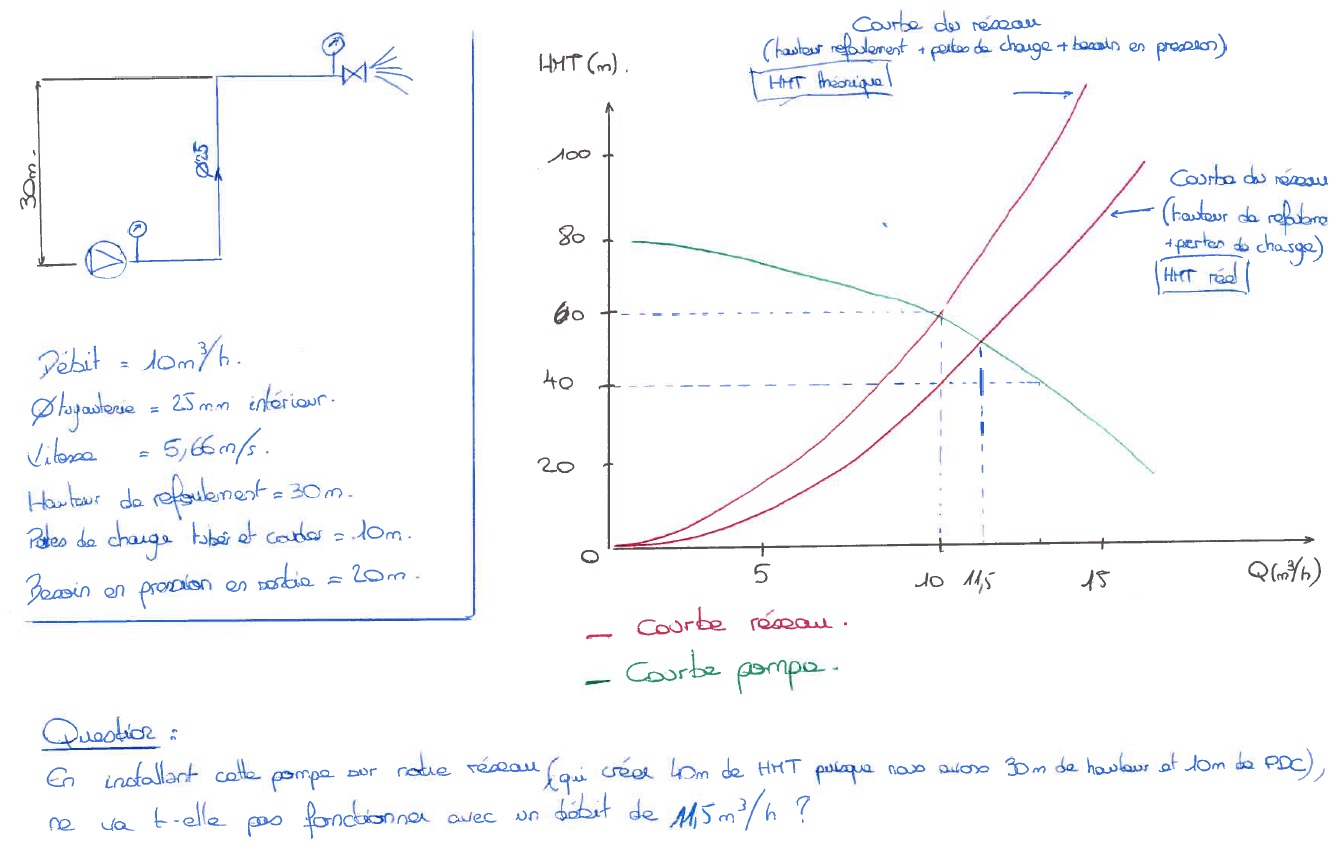 Courbe du réseau
(hauteur refoulement + pertes de charge + besoin en pression)
HMT théorique
HMT (m).
100
80
60
40
20
0
5
10
11,5
15
Q(m³/h)
Courbe du réseau
(hauteur de refouleme
+ pertes de charge)
HMT réel
30m.
Ø25
Débit = 10m³/h.
Øtuyauterie = 25mm intérieur.
Vitesse = 5,66m/s.
Hauteur de refoulement = 30m.
Pertes de charge tubes et coudes = 10m.
Besoin en pression en sortie = 20m.
Courbe réseau.
Courbe pompe.
Question :
En installant cette pompe sur notre réseau (qui créer 40m de HMT puisque nous avons 30m de hauteur et 10m de PDC),
ne va t-elle pas fonctionner avec un débit de 11,5m³/h ?